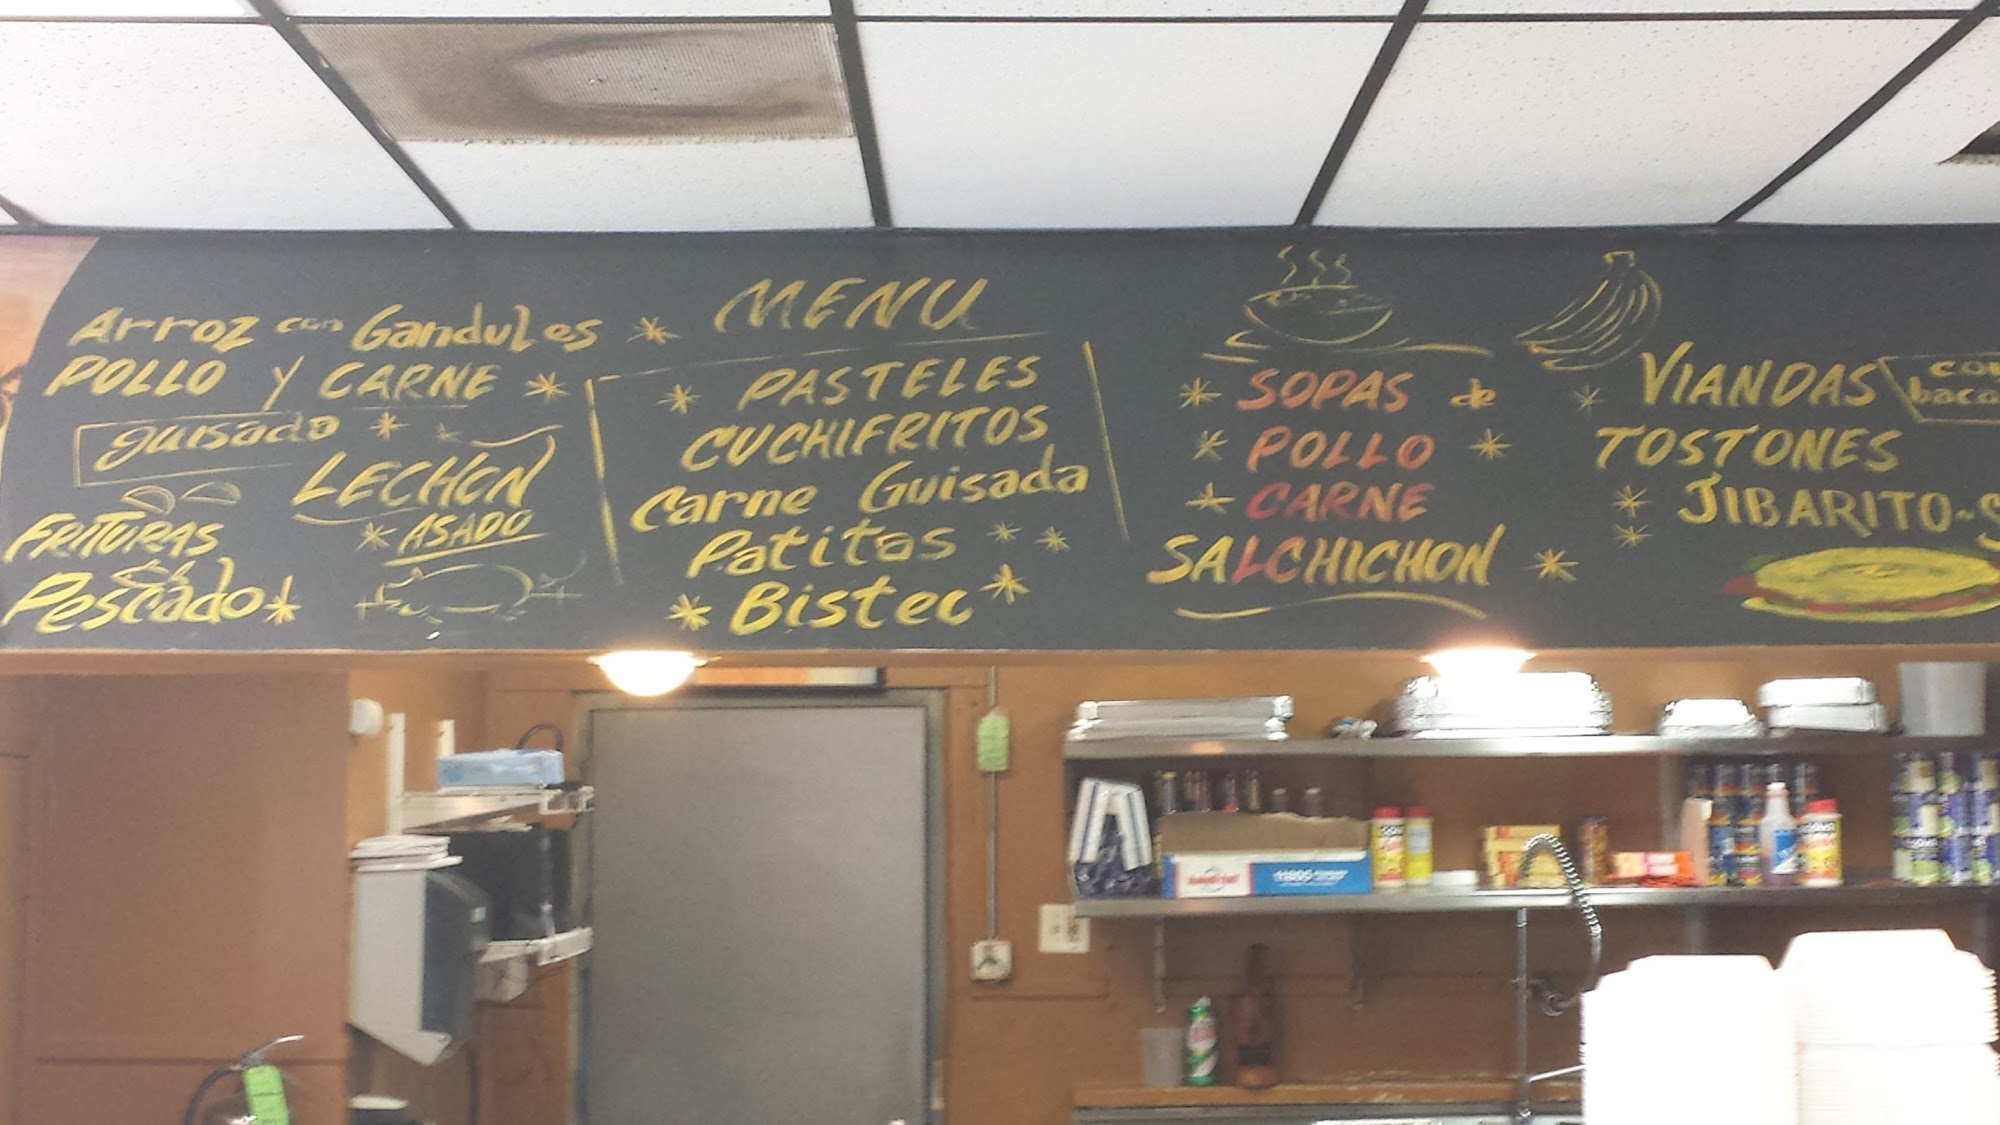 Arroz con Gandules
POLLO Y CARNE
guisado
LECHON
ASADO
FRITURAS
Pescado
MENU
PASTELES
CUCHIFRITOS
Carne Guisada
Patitas
Bistec
SOPAS de
POLLO
CARNE
SALCHICHON
VIANDAS
TOSTONES
JIBARITO-S